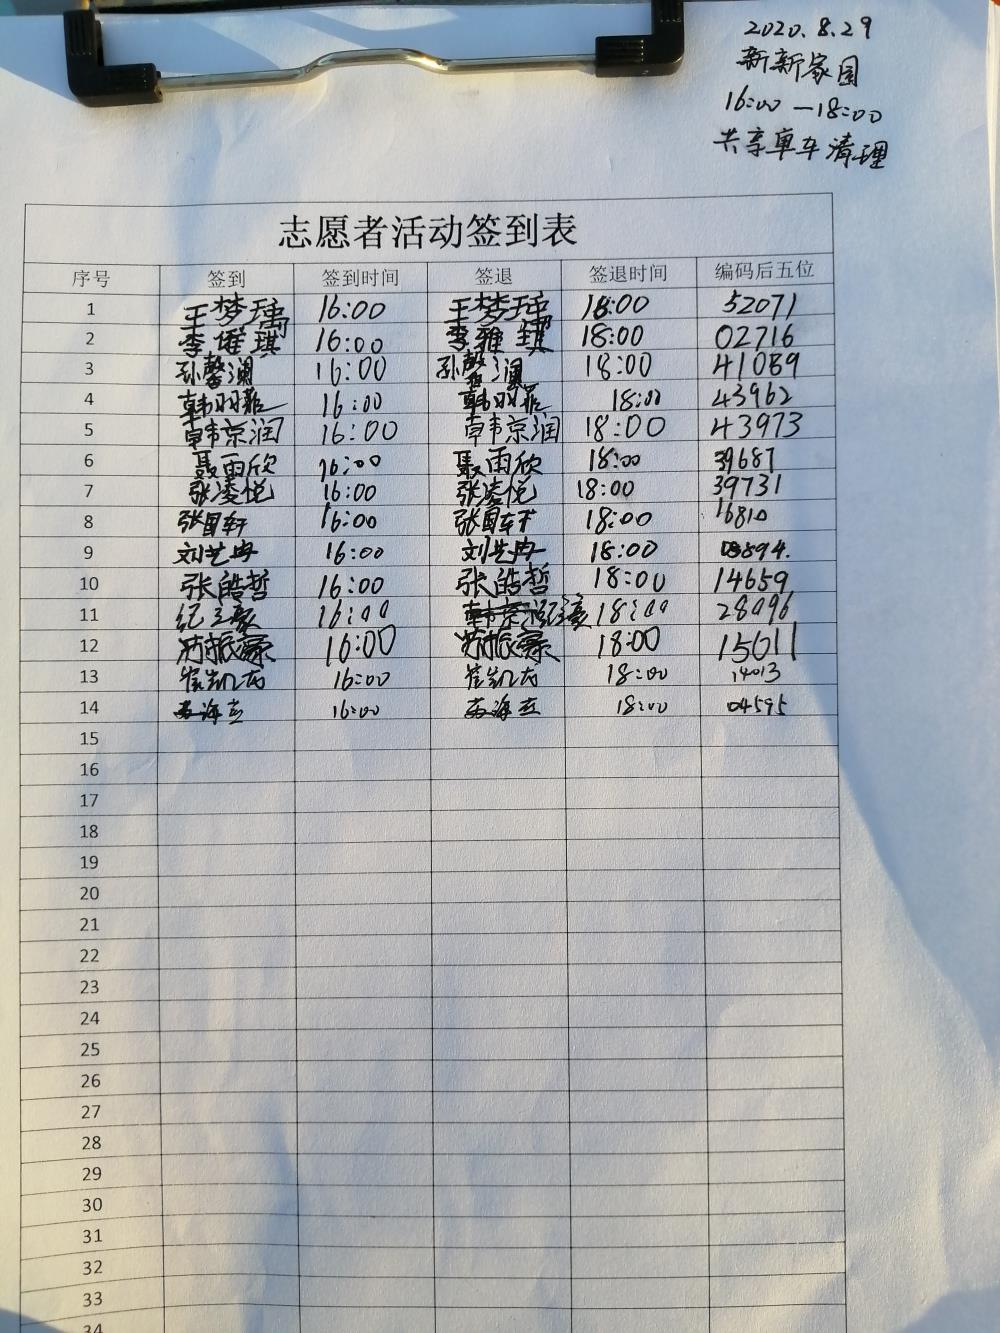 2020.8.29
新新家园
16:00—18:00
共享单车清理
志愿者活动签到表
序号 签到 签到时间 签退 签退时间 编码后五位
1 王梦瑀 16:00 王梦瑀 18:00 52071
2 李雅琪 16:00 李雅琪 18:00 02716
3 孙馨澜 16:00 孙馨澜 18:00 41089
4 韩羽菲 16:00 韩羽菲 18:00 43962
5 韩京润 16:00 韩京润 18:00 43973
6 聂雨欣 16:00 聂雨欣 18:00 39687
7 张凌悦 16:00 张凌悦 18:00 39731
8 张国轩 16:00 张国轩 18:00 16810
9 刘艺冉 16:00 刘艺冉 18:00 894.
10 张皓哲 16:00 张皓哲 18:00 14659
11 纪 16:00 18:00 28096
12 振豪 16:00 振豪 18:00 15011
13 崔凯 16:00 崔凯 18:00 14013
14 海 16:00 海 18:00 04595
15
16
17
18
19
20
21
22
23
24
25
26
27
28
29
30
31
32
33
34